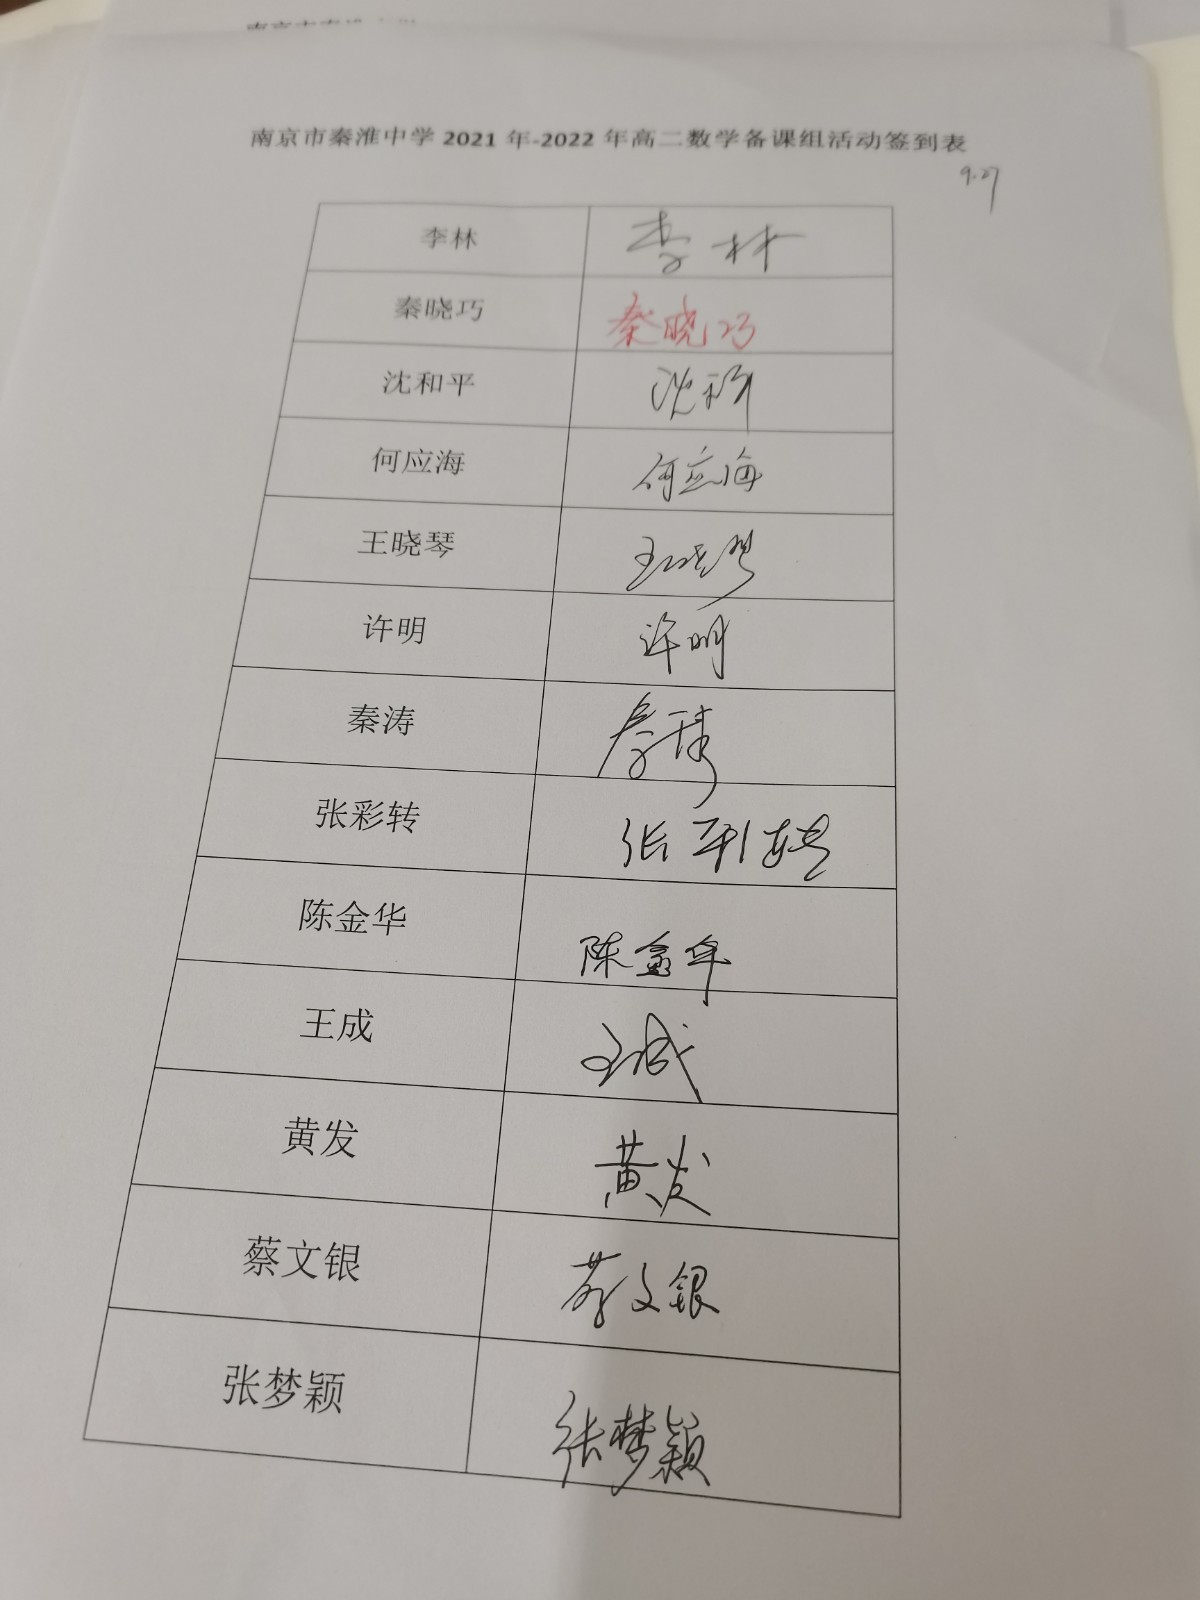 南京市秦淮中学2021年-2022年高二数学备课组活动签到表
9.27
李林 李林
秦晓巧 秦晓巧
沈和平 沈和平
何应海 何应海
王晓琴 王晓琴
许明 许明
秦涛 秦涛
张彩转 张彩转
陈金华 陈金华
王成 王成
黄发 黄发
蔡文银 蔡文银
张梦颖 张梦颖